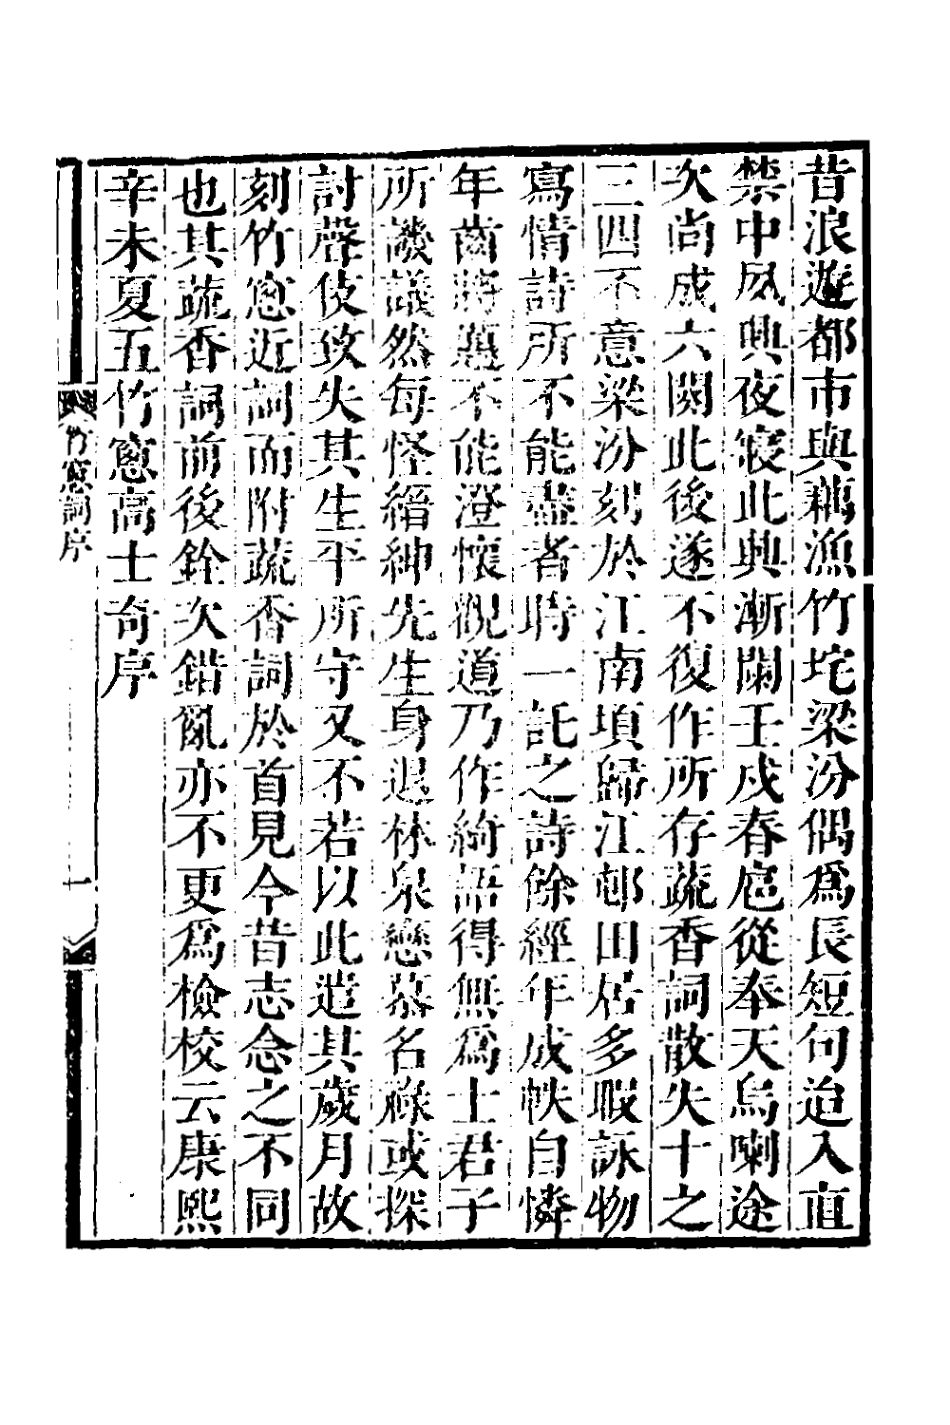 昔浪遊都市與藕漁竹垞梁汾偶爲長短句迨入直
禁中夙興夜寢此興漸闌壬戌春扈從奉天烏喇途
次尚成六闋此後遂不復作所存蔬香詞散失十之
三四不意梁汾刻於江南頃歸江邨田居多暇詠物
寫情詩所不能盡者時一託之詩餘經年成帙自憐
年齒將邁不能澄懷觀道乃作綺語得無爲士君子
所譏議然每怪縉紳先生身退林泉戀慕名祿或探
討聲伎致失其生平所守又不若以此遣其歲月故
刻竹窻近詞而附蔬香詞於首見今昔志念之不同
也其蔬香詞前後銓次錯亂亦不更爲檢校云康熙
辛未夏五竹窻高士奇序
竹窻詞序
一